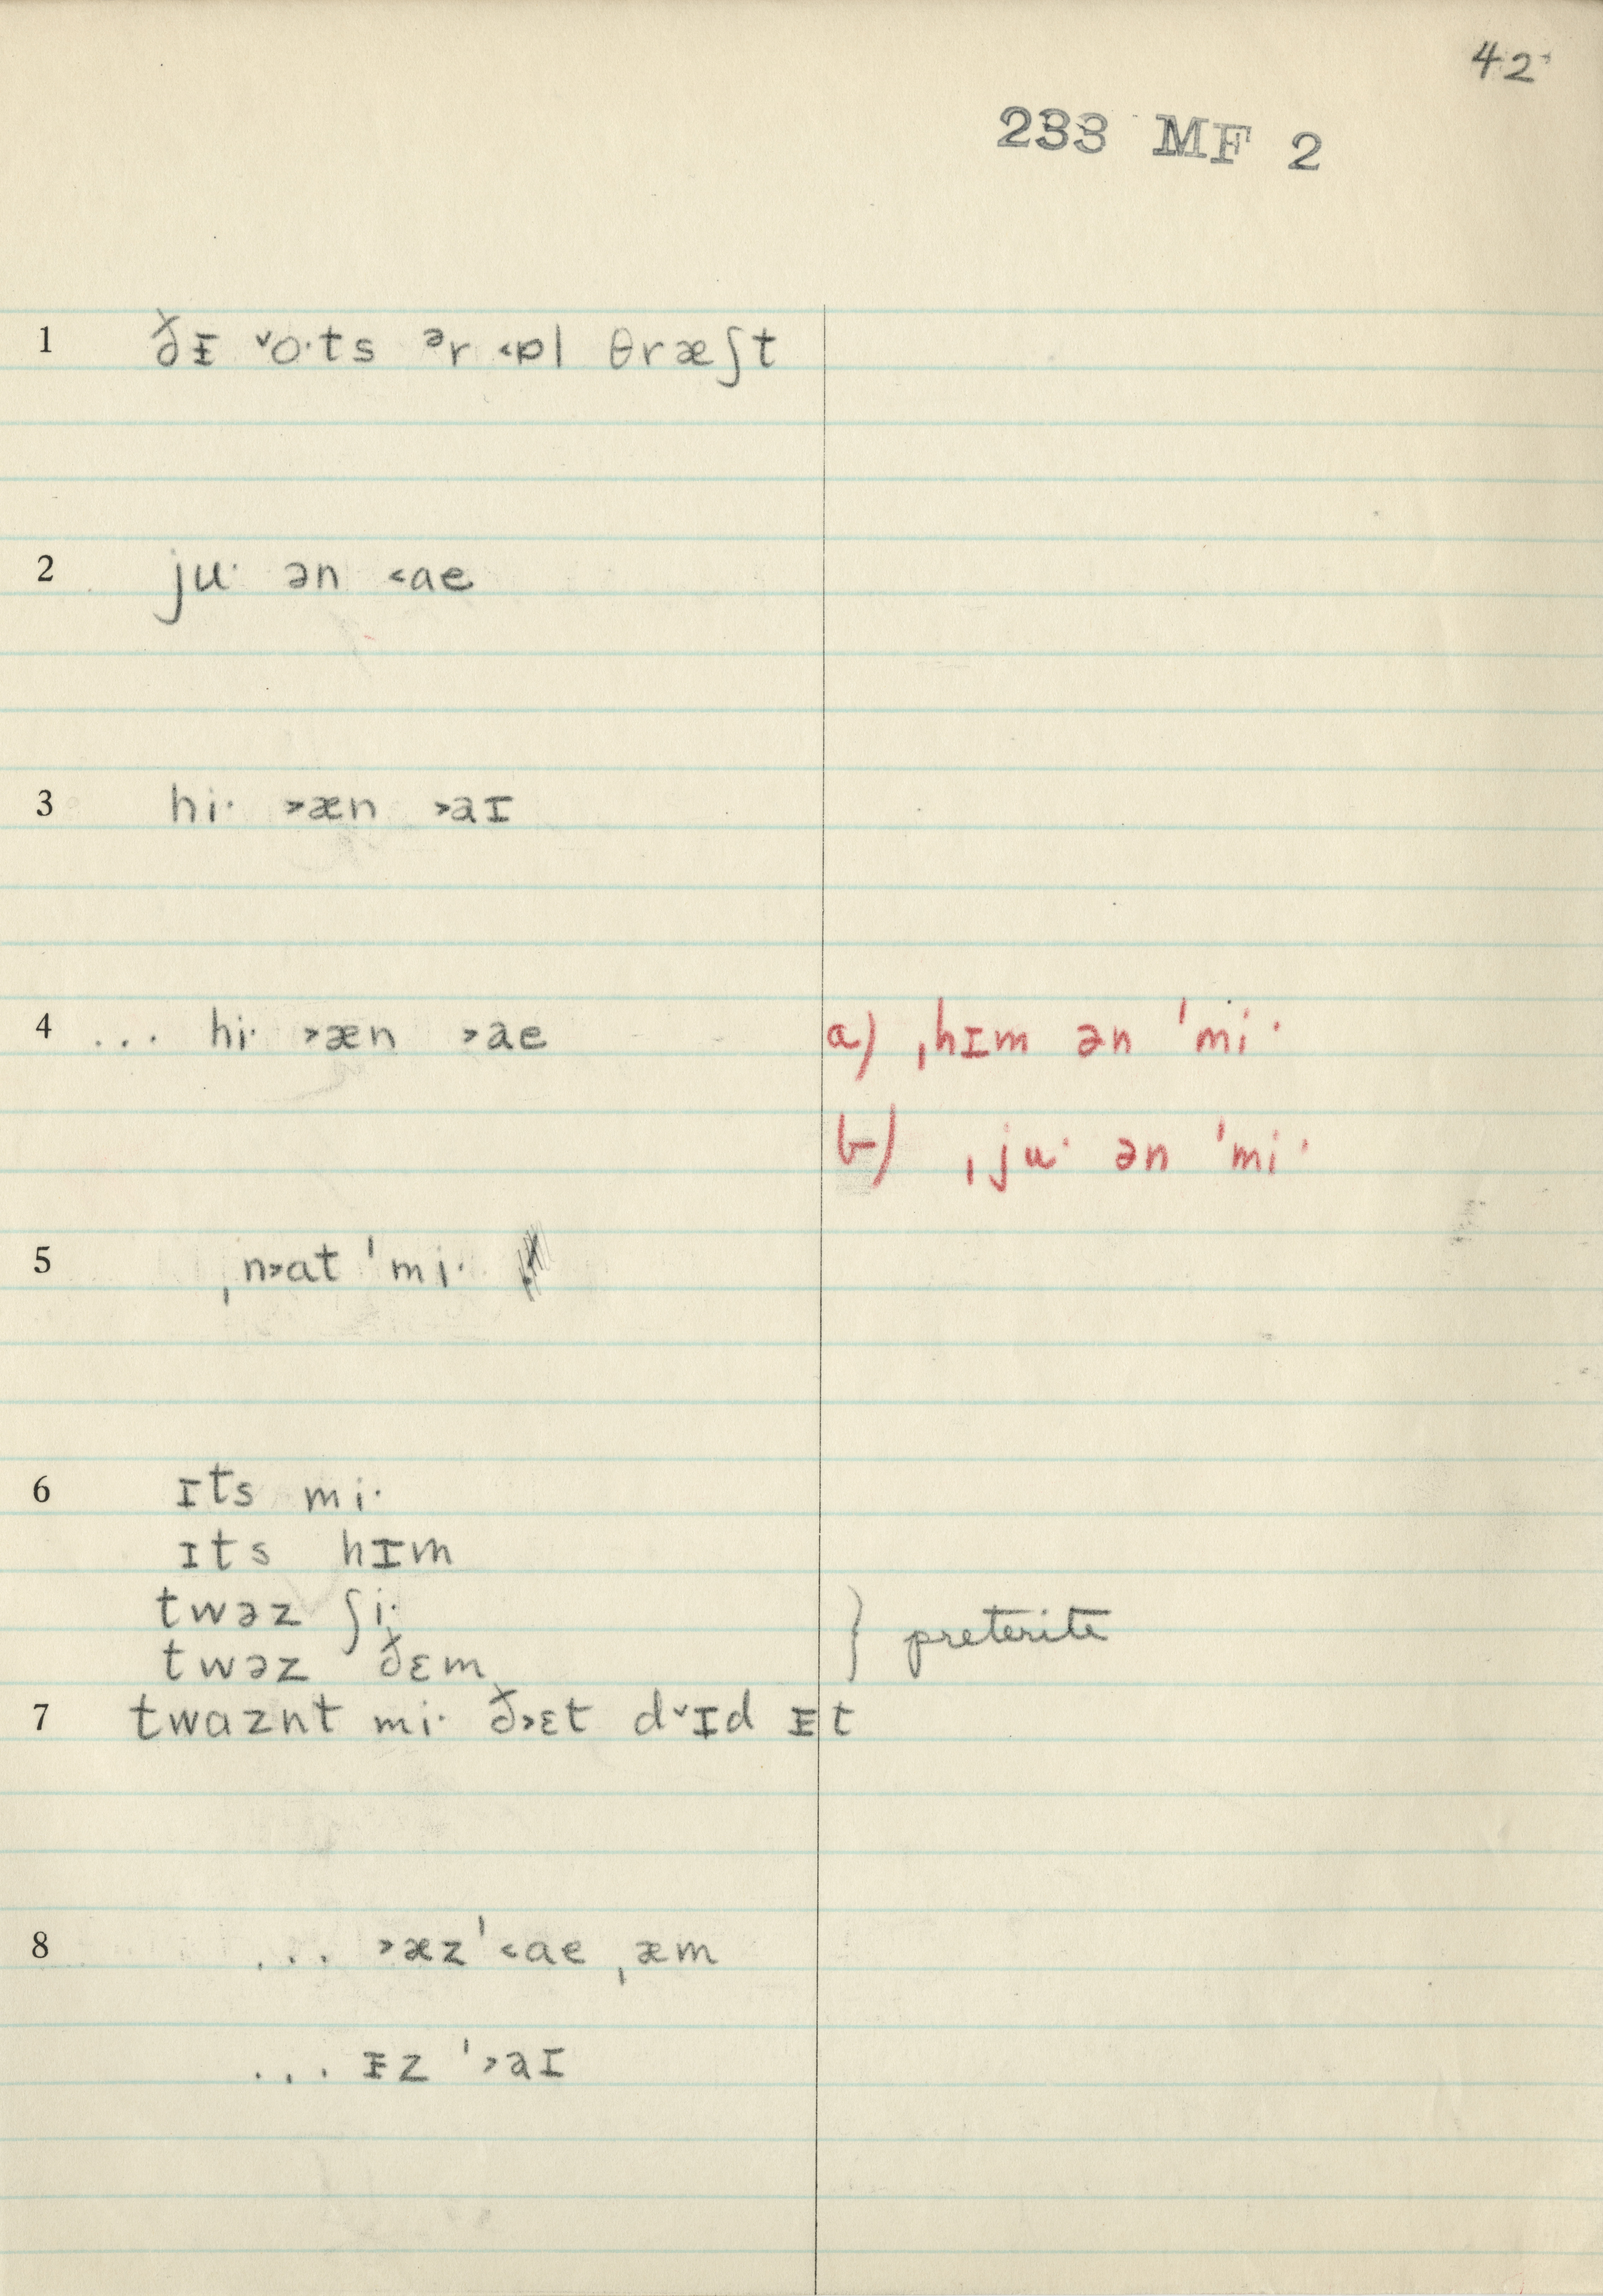 42
233 MF 2
1 ðᵻ ˅o·ts ᵊr ˂ɒl θræʃt
2 ju· ən ˂ae
3 hi· ˃æn ˃aɪ
4 ... hi· ˃æn ˃ae a) ˌhɪm ən ˈmi·
b) ˌju· ən ˈmi·
5 ˌn˃at ˈmi·
6 ɪts mi·
ɪts hɪm
twəz ʃi·
} preterite
twəz ðɛm
7 twɑznt mi· ð˃ɛt d˅ɪd ᵻt
8 ... ˃æz ˈ˂ae ˌæm
... ᵻz ˈ˃aɪ